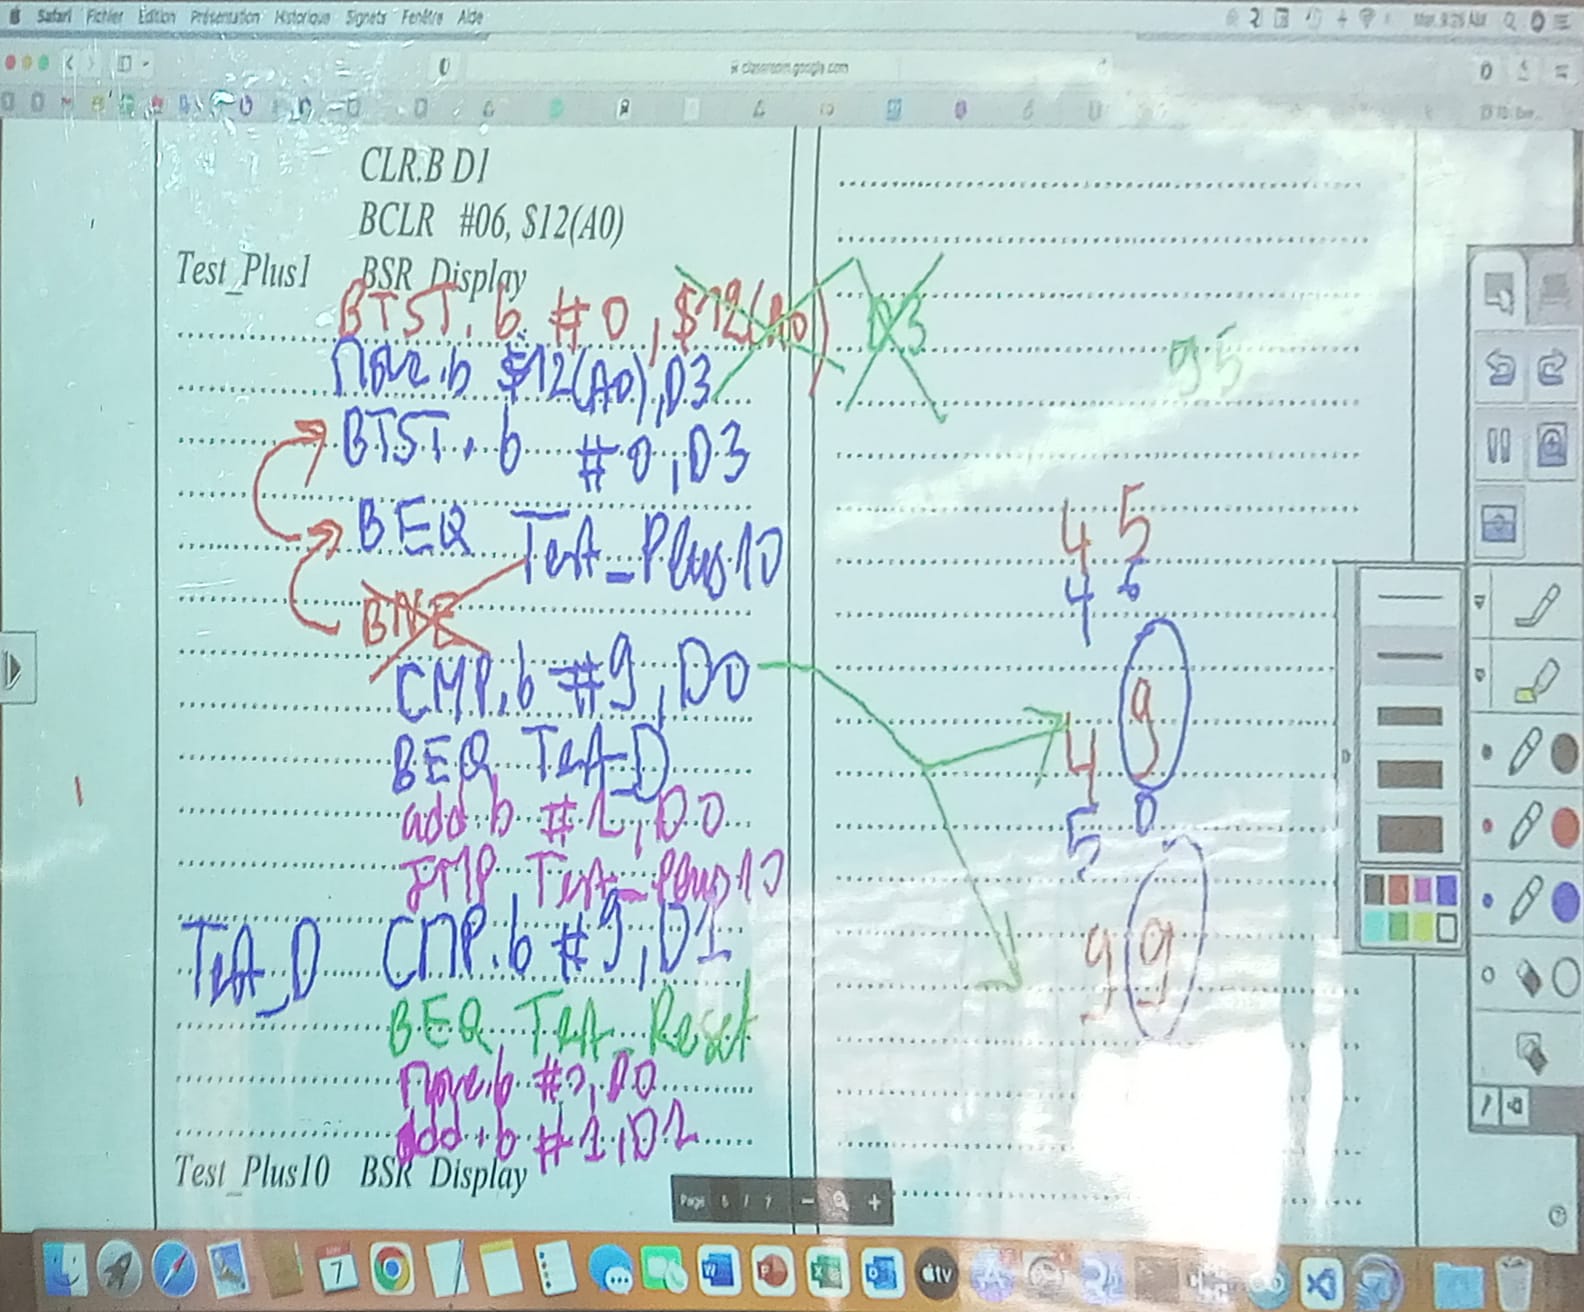 Safari Fichier Édition Présentation Historique Signets Fenêtre Aide
classroom.google.com
CLR.B D1
BCLR #06, $12(A0)
Test_Plus1 BSR Display
BTST.b #0, $12(A0) D3
Move.b $12(A0), D3
95
BTST.b #0, D3
BEQ Test_Plus10
BNE
CMP.b #9, D0
BEQ Test_D
add.b #1, D0
JMP Test_Plus10
Test_D CMP.b #9, D1
BEQ Test_Reset
move.b #0, D0
add.b #1, D1
Test_Plus10 BSR Display
45
46
49
50
99
Page 6 / 7 − +
7
tv